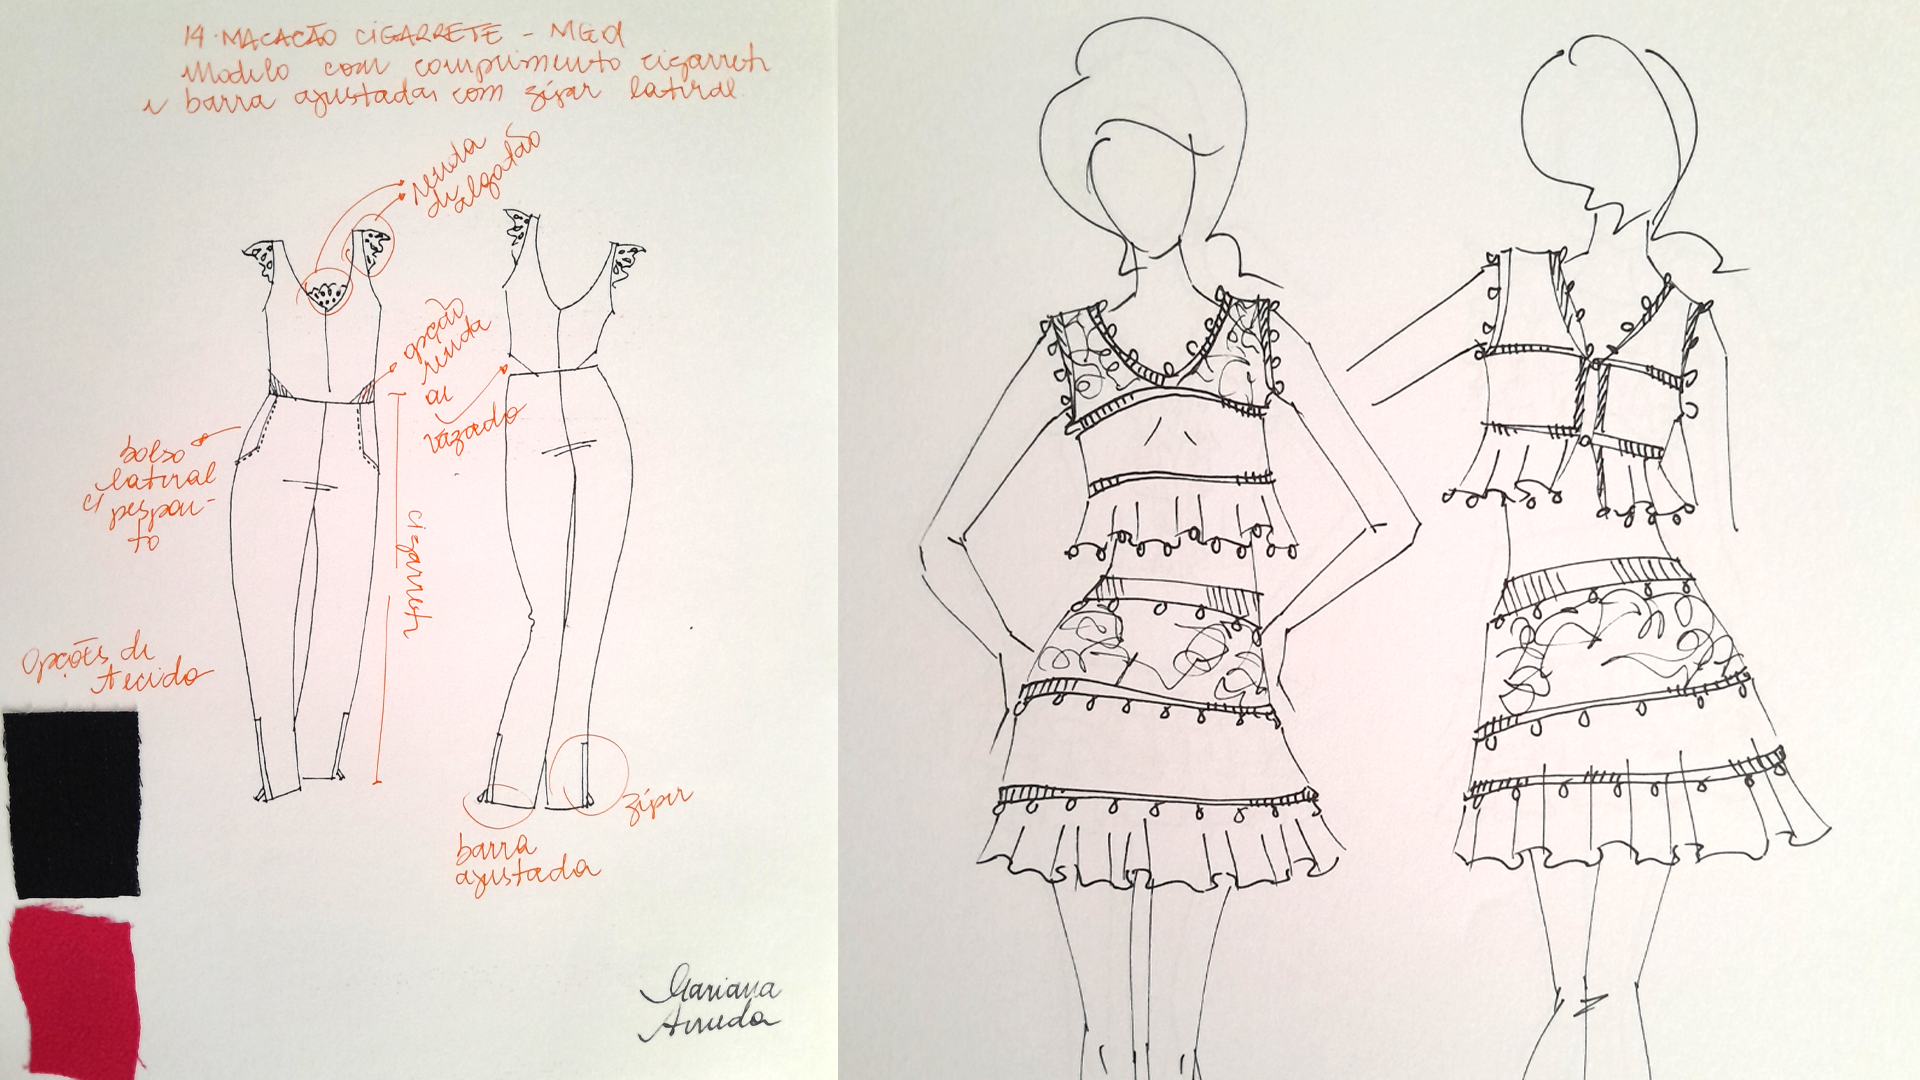 14. MACACÃO CIGARRETE - MGD
Modelo com comprimento cigarrete
e barra ajustadas com zíper lateral
renda
de
algodão
opção
renda
ou
vazado
bolso
lateral
c/ pespon-
to
cigarrete
Opções de
tecido
zíper
barra
ajustada
Mariana
Arruda